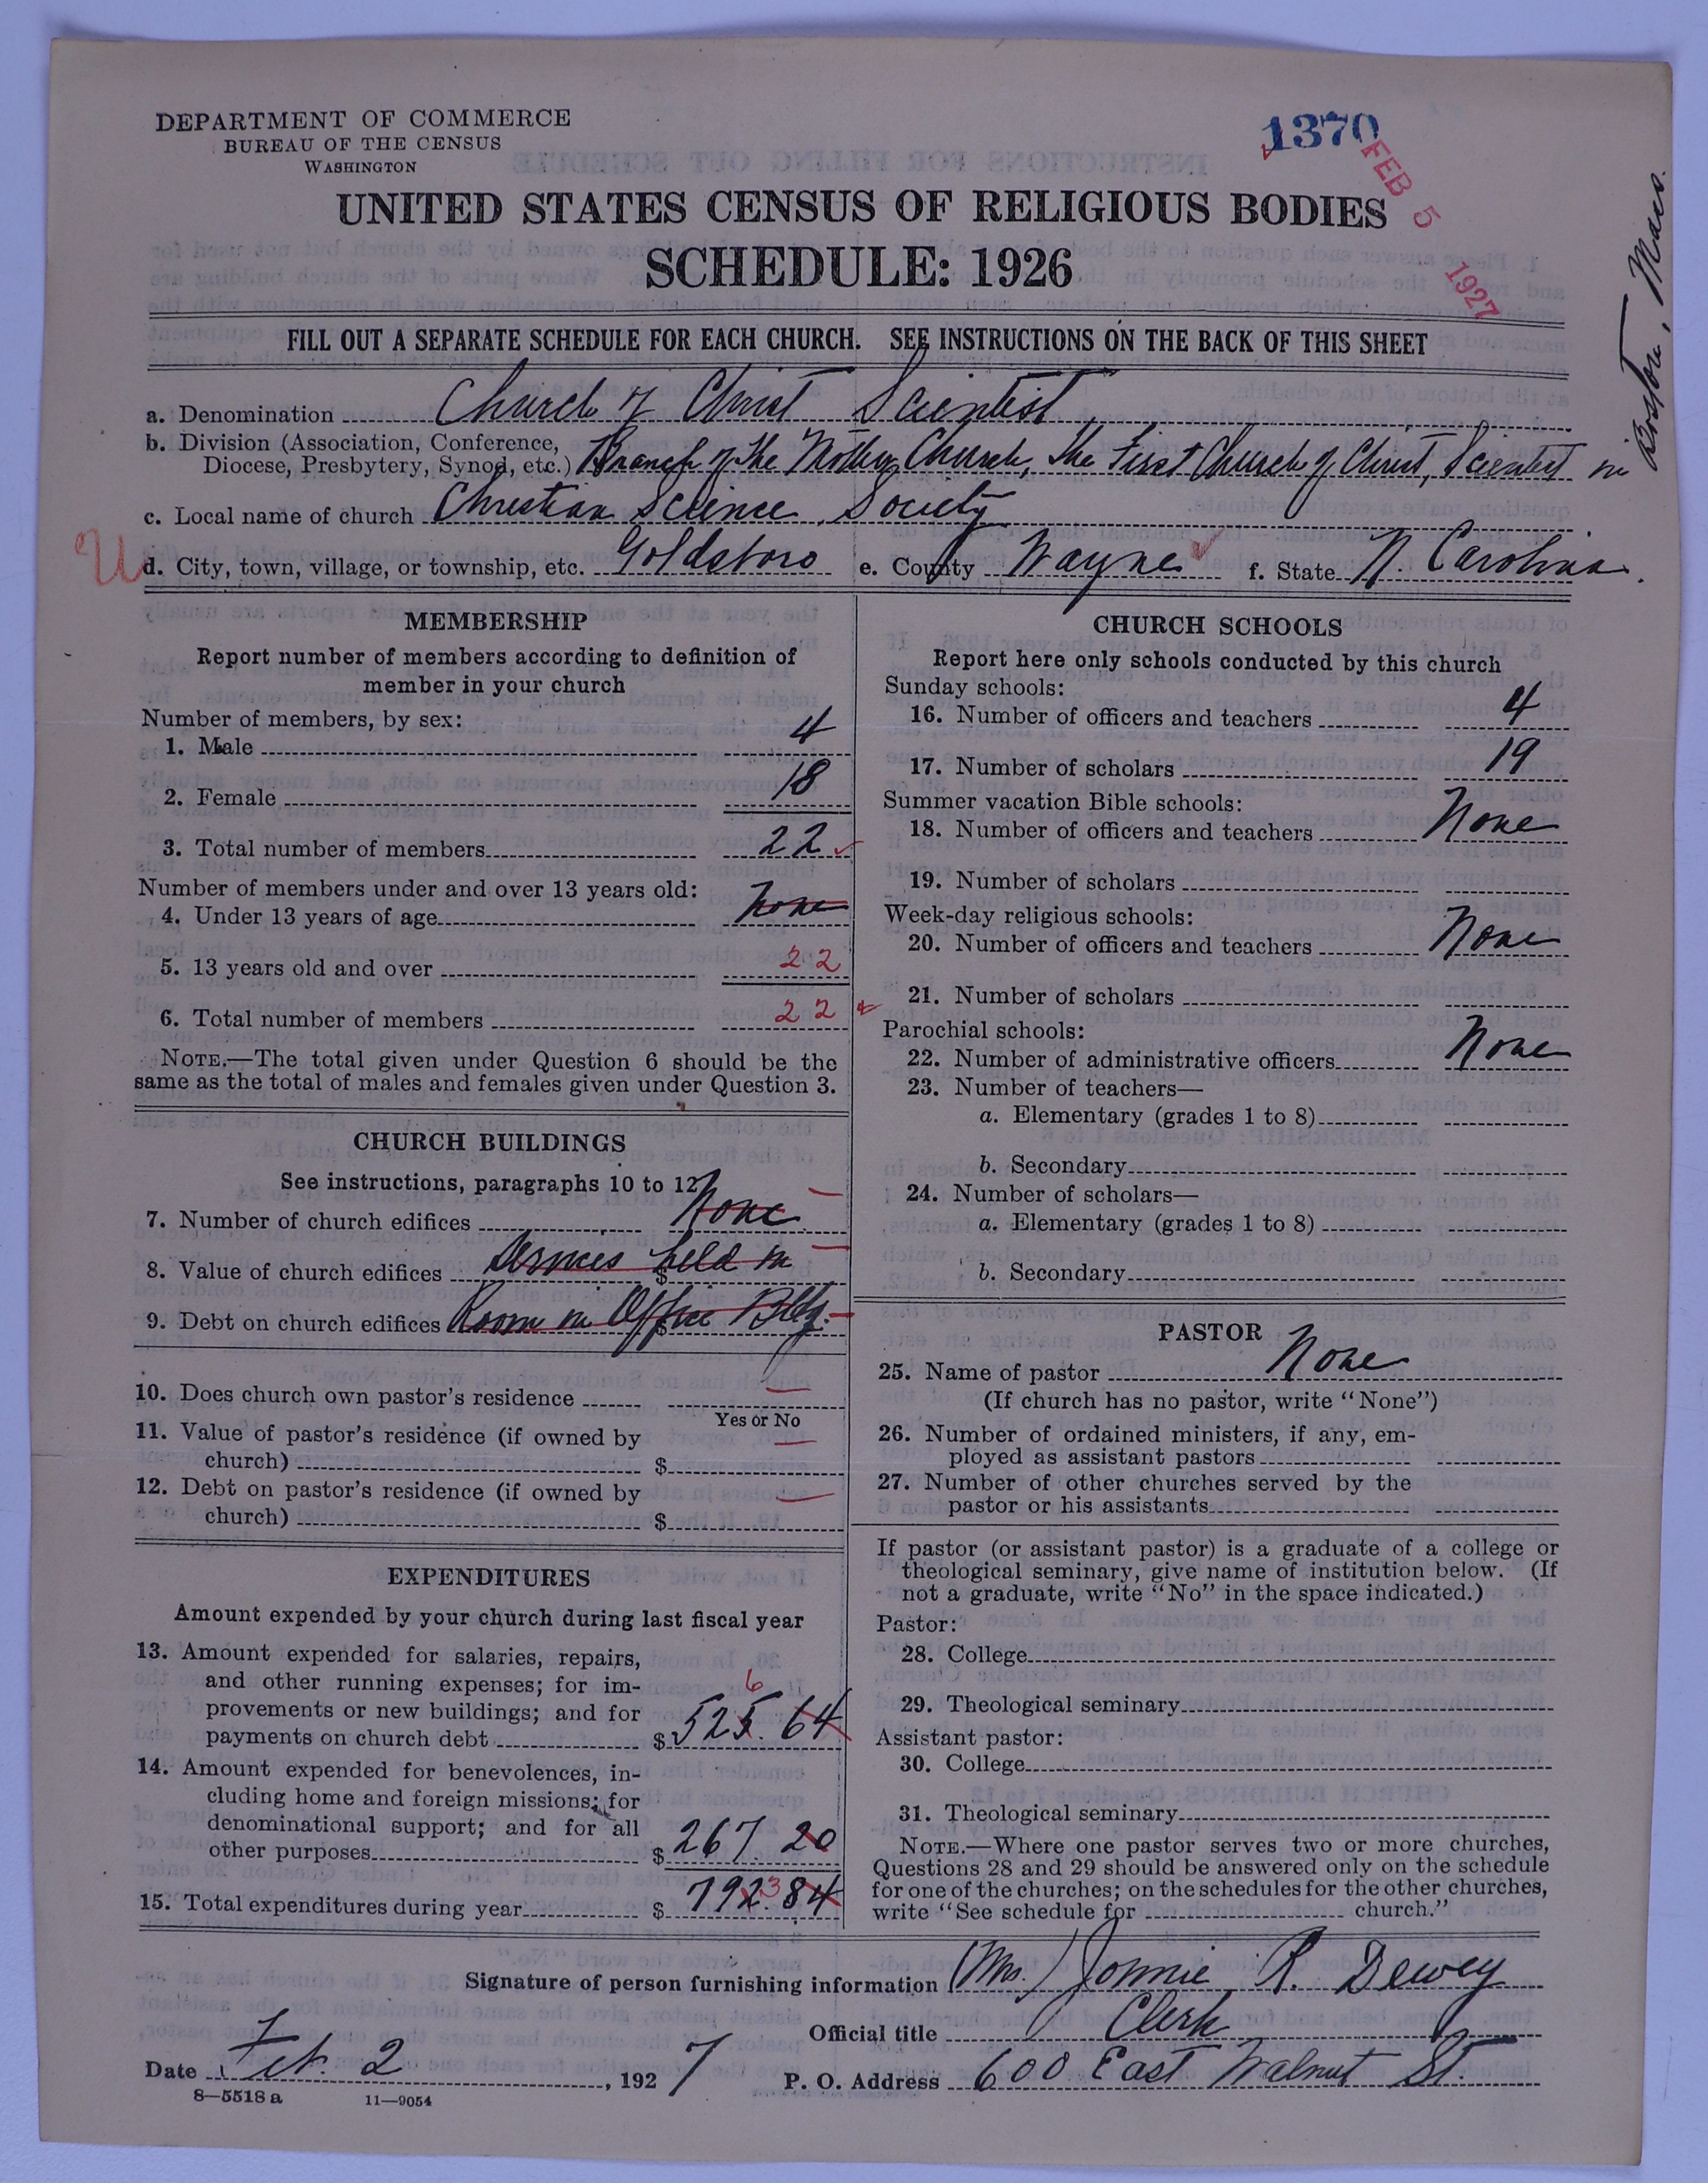 DEPARTMENT OF COMMERCE
BUREAU OF THE CENSUS
WASHINGTON
1370
FEB 5 1927
UNITED STATES CENSUS OF RELIGIOUS BODIES
SCHEDULE: 1926
FILL OUT A SEPARATE SCHEDULE FOR EACH CHURCH. SEE INSTRUCTIONS ON THE BACK OF THIS SHEET
a. Denomination Church of Christ Scientist
b. Division (Association, Conference,
Diocese, Presbytery, Synod, etc.) Branch of The Mother Church, the First Church of Christ, Scientist in Boston, Mass.
c. Local name of church Christian Science Society
U
d. City, town, village, or township, etc. Goldsboro e. County Wayne f. State N. Carolina.
MEMBERSHIP
Report number of members according to definition of
member in your church
Number of members, by sex:
1. Male 4
2. Female 18
3. Total number of members 22
Number of members under and over 13 years old:
4. Under 13 years of age None
5. 13 years old and over 22
6. Total number of members 22
NOTE.—The total given under Question 6 should be the
same as the total of males and females given under Question 3.
CHURCH BUILDINGS
See instructions, paragraphs 10 to 12
7. Number of church edifices None
8. Value of church edifices $ Services held in
9. Debt on church edifices $ Room in Office Bldg.
10. Does church own pastor's residence
Yes or No
11. Value of pastor's residence (if owned by
church) $
12. Debt on pastor's residence (if owned by
church) $
EXPENDITURES
Amount expended by your church during last fiscal year
13. Amount expended for salaries, repairs,
and other running expenses; for im-
6
provements or new buildings; and for
payments on church debt $ 525.64
14. Amount expended for benevolences, in-
cluding home and foreign missions; for
denominational support; and for all
other purposes $ 267.20
3
15. Total expenditures during year $ 792.84
CHURCH SCHOOLS
Report here only schools conducted by this church
Sunday schools:
16. Number of officers and teachers 4
17. Number of scholars 19
Summer vacation Bible schools:
18. Number of officers and teachers None
19. Number of scholars
Week-day religious schools:
20. Number of officers and teachers None
21. Number of scholars
Parochial schools:
22. Number of administrative officers None
23. Number of teachers—
a. Elementary (grades 1 to 8)
b. Secondary
24. Number of scholars—
a. Elementary (grades 1 to 8)
b. Secondary
PASTOR
25. Name of pastor None
(If church has no pastor, write "None")
26. Number of ordained ministers, if any, em-
ployed as assistant pastors
27. Number of other churches served by the
pastor or his assistants
If pastor (or assistant pastor) is a graduate of a college or
theological seminary, give name of institution below. (If
not a graduate, write "No" in the space indicated.)
Pastor:
28. College
29. Theological seminary
Assistant pastor:
30. College
31. Theological seminary
NOTE.—Where one pastor serves two or more churches,
Questions 28 and 29 should be answered only on the schedule
for one of the churches; on the schedules for the other churches,
write "See schedule for church."
Signature of person furnishing information (Mrs.) Jonnie R. Dewey
Official title Clerk
Date Feb. 2, 1927 P. O. Address 600 East Walnut St.
8—5518 a 11—9054